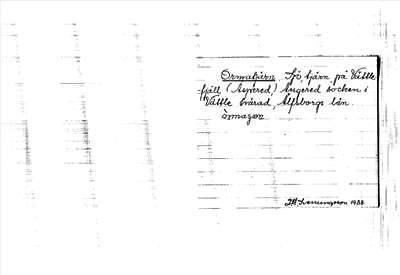 Ormatjärn Sjö, tjärn, på Vättle
fjäll (Aspered,) Angered socken i
Vättle härad, Älfsborgs län.
ormagen
1933